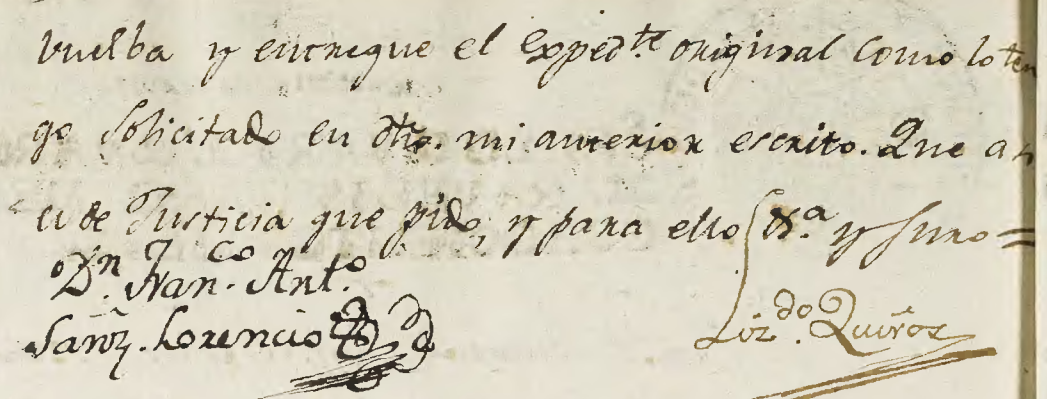 buelba y entregue el Exped.te original como lo ten
go solicitado en dho. mi anterior escrito. Que a
si es de Justicia que pido, y para ello y Juro =
Dn. Fran.co Ant.o
Lorencio
Liz.do Quirós